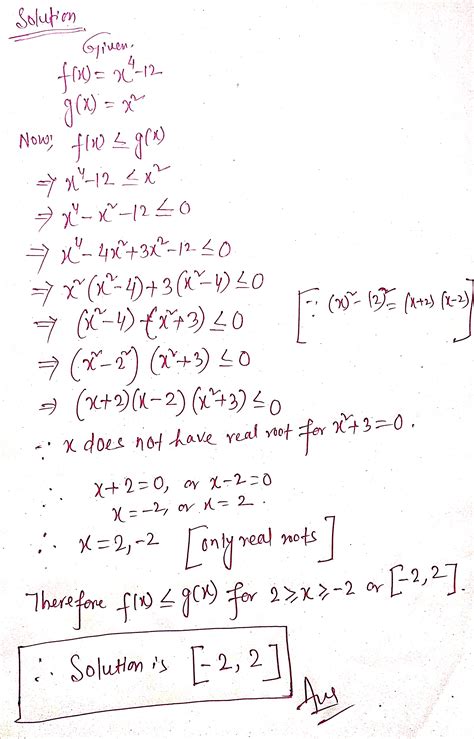 Solution
Given.
f(x) = x⁴-12
g(x) = x²
Now, f(x) ≤ g(x)
⇒ x⁴-12 ≤ x²
⇒ x⁴ - x² - 12 ≤ 0
⇒ x⁴ - 4x² + 3x² - 12 ≤ 0
⇒ x² (x²-4) + 3 (x²-4) ≤ 0
⇒ (x²-4) (x²+3) ≤ 0 [∵ (x)² - (2)² = (x+2) (x-2)]
⇒ (x²-2²) (x²+3) ≤ 0
⇒ (x+2)(x-2) (x²+3) ≤ 0
∵ x does not have real root for x²+3=0.
∴ x+2=0, or x-2=0
x=-2, or x=2.
∴ x=2,-2 [only real roots]
Therefore f(x) ≤ g(x) for 2 ≥ x ≥ -2 or [-2,2].
∴ Solution is [-2, 2]
Ans